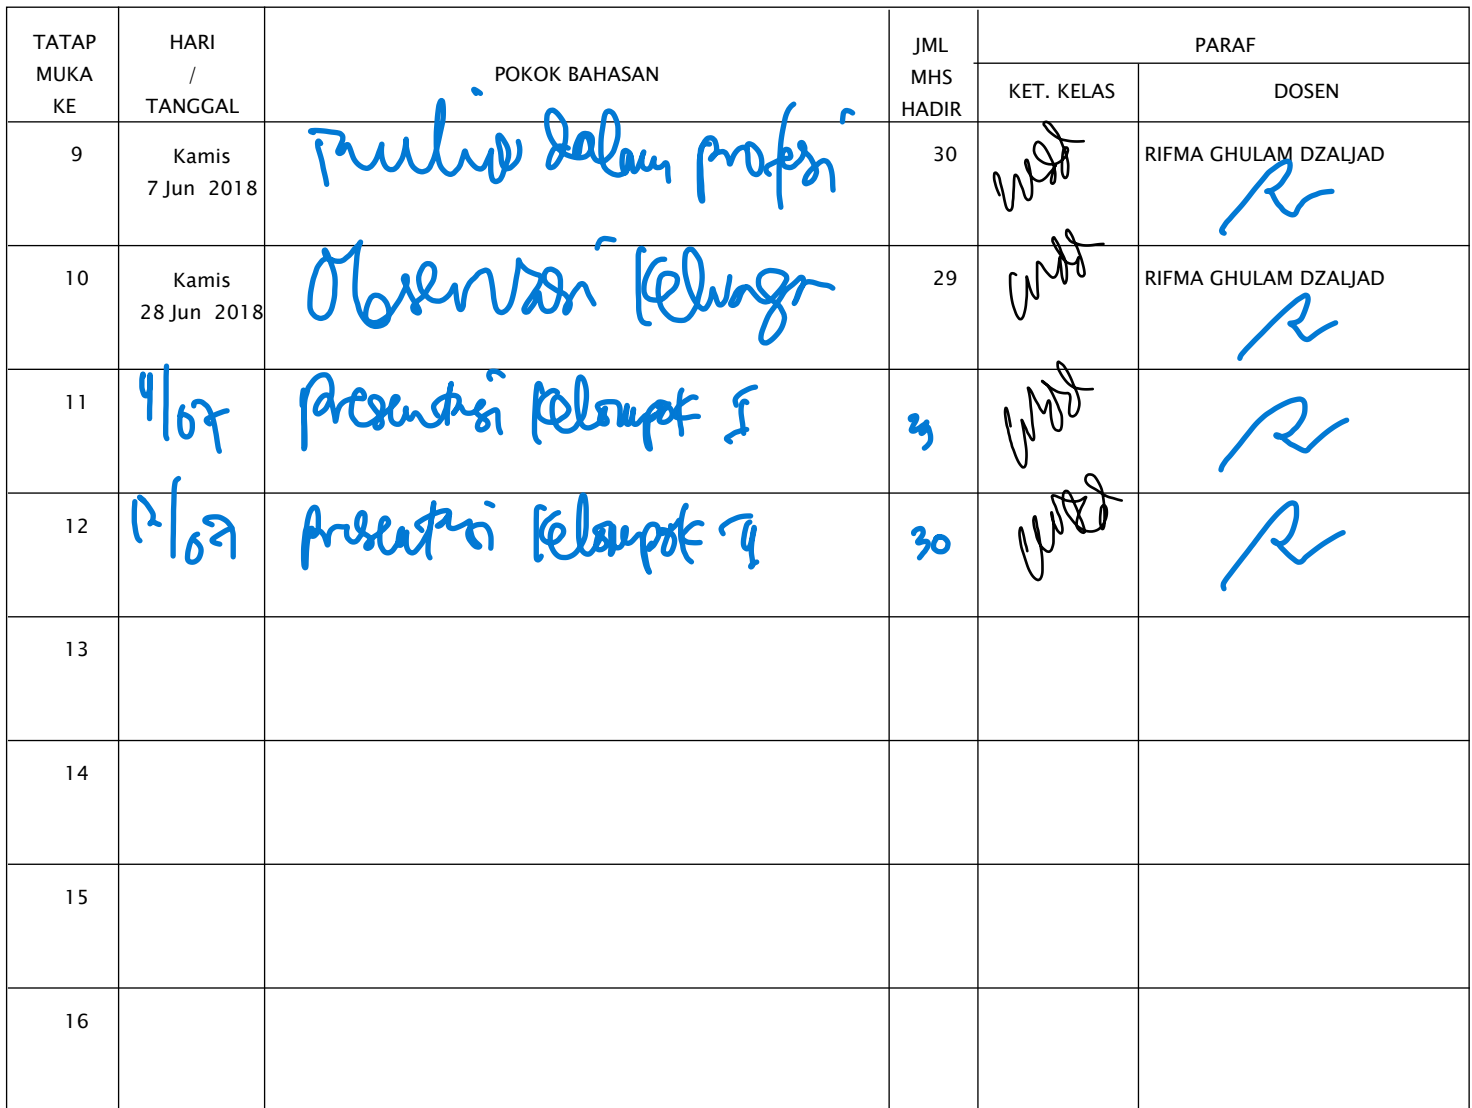 TATAP MUKA KE
HARI / TANGGAL
POKOK BAHASAN
JML MHS HADIR
PARAF
KET. KELAS
DOSEN
9
Kamis
7 Jun 2018
dalam profesi
30
RIFMA GHULAM DZALJAD
10
Kamis
28 Jun 2018
Observasi
29
RIFMA GHULAM DZALJAD
11
/07
presentasi Kelompok I
29
12
12/07
presentasi Kelompok II
30
13
14
15
16